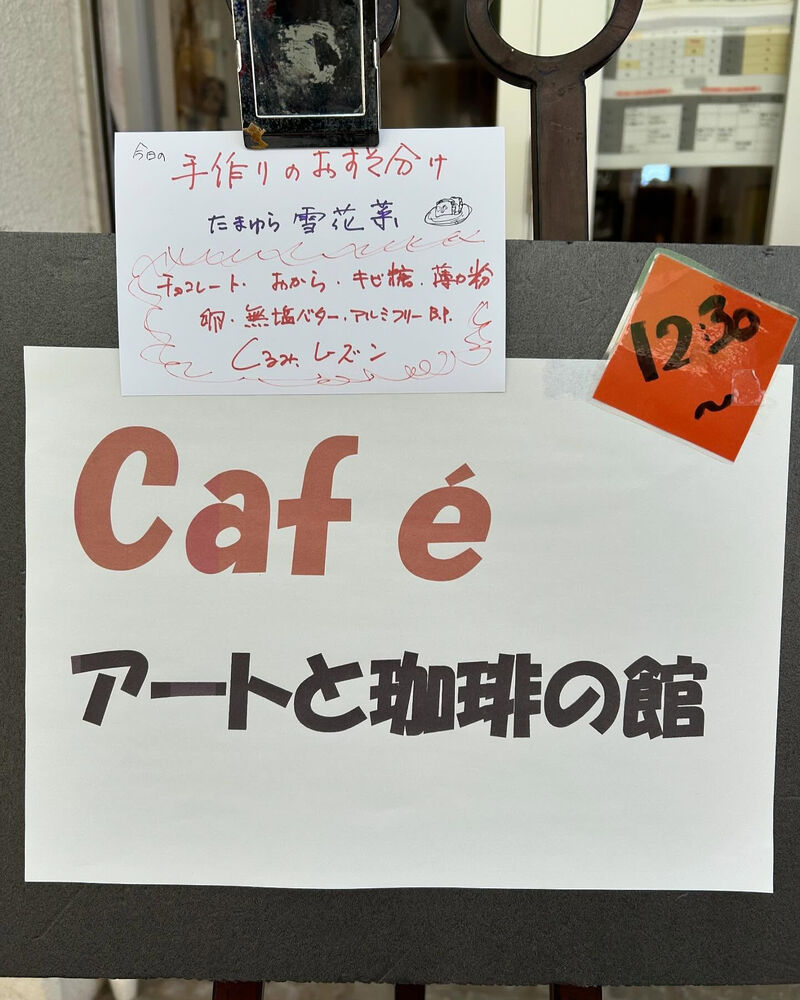 今日の
手作りのおすそ分け
たまゆら 雪花菜
チョコレート・おから・キビ糖・薄力粉
卵・無塩バター・アルミフリーB.P.
くるみ、レーズン
12:30
～
Café
アートと珈琲の館